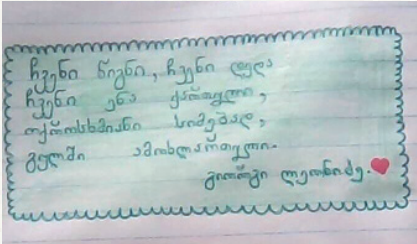 ჩვენი წიგნი, ჩვენი დედა
ჩვენი ენა ქართული,
ოქროსხმიანი სიმებად,
გულში ამოხლართული.
გიორგი ლეონიძე.